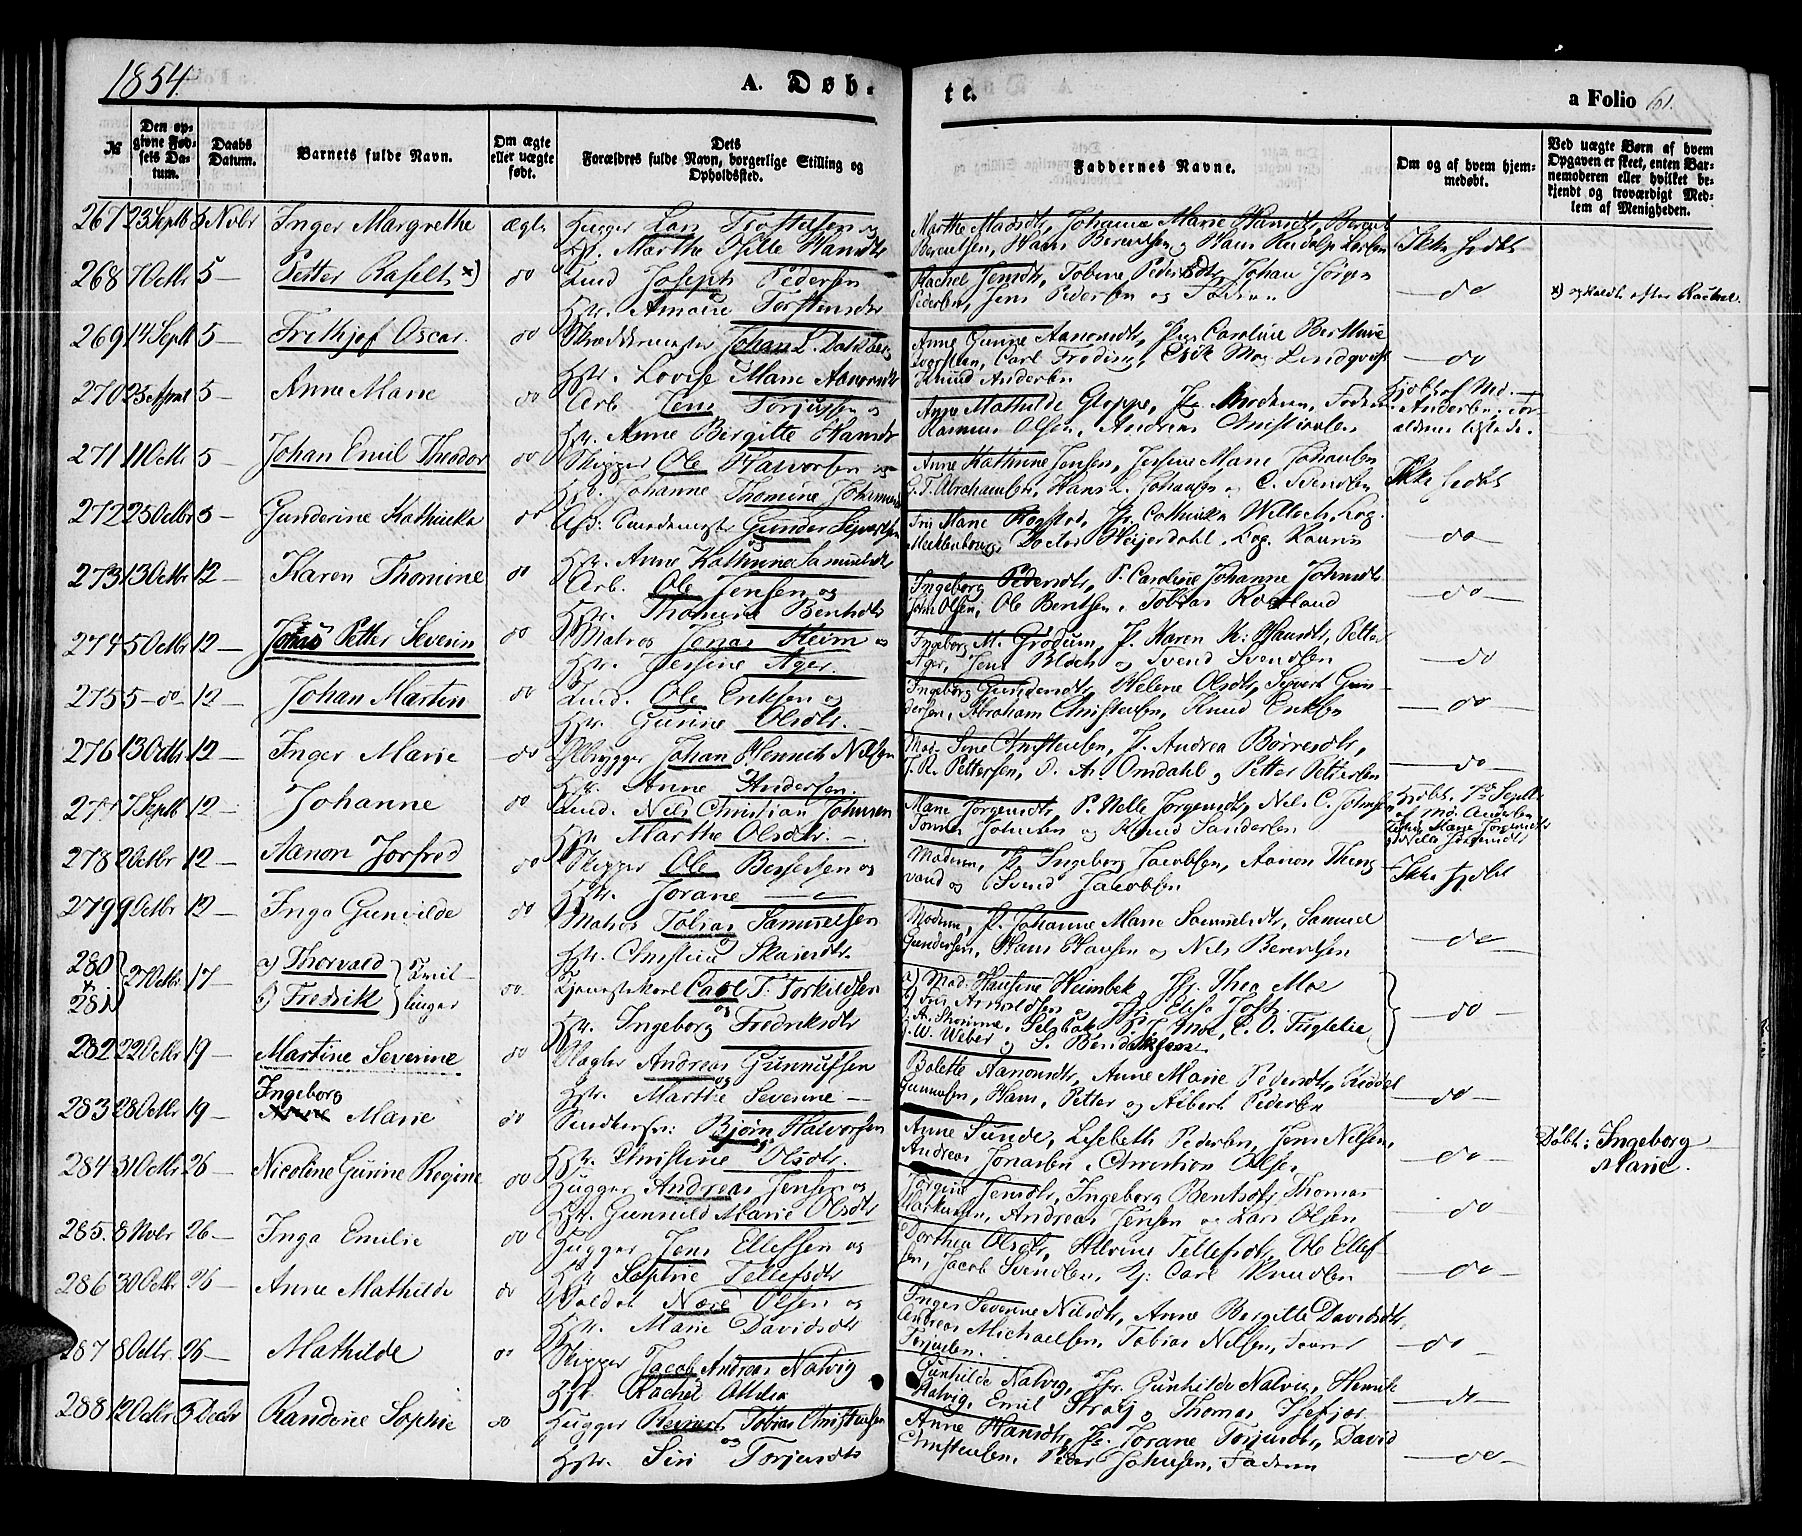 1854.
A. Døb-
te.
a Folio 61.
№
Den op-
givne Fød-
sels Da-
tum.
Daabs
Datum.
Barnets fulde Navn.
Om ægte
eller uægte
født.
Dets
Forældres fulde Navn, borgerlige Stilling og
Opholdssted.
Faddernes Navne.
Om og af hvem hjem-
medøbt.
Ved uægte Børn af hvem
Opgaven er skeet, enten Bar-
nemoderen eller hvilket be-
kjendt og troværdigt Med-
lem af Menigheden.
267 23 Septb 5 Novbr Inger Margrethe ægte Hugger Lars Tostensen og
Hstr. Marthe Sille Hansdtr
Marthe Madsdtr, Johanna Marie Hansdtr, Berent
Berentsen, Hans Berentsen og Hans Rudolf Larsen
Ikke hjdbt
268 7 Octbr 5 — Petter Rafelt x) do Lind Joseph Pedersen
Hstr. Amalie Torstensdtr
Rachel Jensdtr, Tobine Pedersdtr, Johan Jörgen
Pedersen, Jens Pedersen og Faderen
— do
x) opkaldt efter Rachel.
269 14 Septb 5 — Frithjof Oscar. do Skræddermester Johan L. Dahlberg
Hstr. Lovise Marie Aanonsdtr
Anne Gurine Aanonsdtr, Caroline Berthine
Carl Freding, Lindqvist
Knud Andersen
— do
270 25 April 5 — Anne Marie do Arb. Jens Torjussen og
Hstr. Anne Birgitte Hansdtr
Anne Mathilde Gloppe, Jf. Moderen, Faderen
Rasmus Olsen, Andreas Christiansen
Hjdbt af Md.
Andersen. For-
ældrene tilstede.
271 11 Octbr 5 — Johan Emil Theodor do Skipper Ole Halvorsen og
Hstr. Johanne Thomine Johannesd
Anne Kathrine Jensen, Jensine Marie Johansen
G. T. Abrahamsen, Hans L. Johansen og C. Svendsen
Ikke hjdbt
272 25 Octbr 5 — Gunderine Kathinka do Afd. Smedemester Gunder Sivertsen
og
Hstr. Anne Kathrine Samuelsdtr
Frk Marie Rogstad, Jfr. Cathinka Willoch, Log.
Mecklenborg, Doctor Heijerdahl, Log.
— do —
273 13 Octbr 12 — Karen Thomine do Arb. Ole Jensen og
Hstr. Thomine Bentsdtr
Ingeborg Pedersdtr, P. Caroline Johanne Johnsdtr
John Olsen, Ole Bentsen, Tobias Rogland
— do
274 5 Octbr 12 — Jonas Petter Severin do Matros Jonas Heim og
Hstr. Jensine Ager.
Ingeborg M. Grødum, Jf. Karen K: Hansdtr, Petter
Ager, Jens Bloch og Svend Svendsen
— do
275 5 — do — 12 — Johan Martin do Lind. Ole Eriksen og
Hstr. Gurine Olsdtr.
Ingeborg Gundersdtr, Helene Olsdtr, Sivert Gun-
dersen, Abraham Christensen, Knud Eriksen
— do
276 13 Octbr 12 — Inger Marie — do Ølbrygger Johan Henrich Nielsen
Hstr. Anne Andersen.
Mad. Sine Christensen, J. Andrea Børresdtr,
T. R. Pettersen, O. A. Omdahl og Petter Petersen
— do —
277 7 Septb 12 — Johanne do Lind. Nils Christian Johnsen
Hstr. Marthe Olsdtr. —
Marie Jörgensdtr, P. Nelle Jörgensdtr, Nils C. Johnsen
Tønnes Johnsen og Knud Sandersen
Hjdbt. 7de Septbr
af Md. Andersen
Marie Jörgensdtr
og Nelle Jörgensdtr
278 2 Octbr 12 — Aanon Jorfred do Skipper Ole Bessesen og
Hstr. Jorane —
Moderen, Jf Ingeborg Jacobsen, Aanon
og Svend Jacobsen
Ikke hjdbt
279 9 Octbr 12 — Inga Gunvilde do Matros Tobias Samuelsen
Hstr. Christine
Moderen, P. Johanne Marie Samuelsdtr, Samuel
Gundersen, Hans Hansen og Nils Berentsen
— do —
280
+
281 27 Octbr 17 — a) Thorvald
b) Fredrik Tvil-
linger do. Tjenestekarl Carl T. Torkildsen
og
Hstr. Ingeborg Fredriksdtr
a) Mad. Hansine Heimbek, Jfr Thea Moe
b) Frk Arnoldsen, Elise
W. Weber og S. Bendiksen
— do —
282 22 Octbr 19 — Martine Severine do Slagter Andreas Gunnufsen
og
Hstr. Marthe Severine —
Bolette Aanonsdtr, Anne Marie Pedersdtr,
Gunnufsen, Hans, Petter og Albert Pedersen
— do —
283 28 Octbr 19 — Ingeborg
Anne Marie do Bjørn Halvorsen
og
Hstr. Christine Olsdtr.
Anne Sunde, Lisebeth Pedersen, Jens Nilsen,
Andreas Jonassen, Christian Olsen
— do —
Døbt: Ingeborg
Marie.
284 31 Octbr 26 — Nicoline Gurine Regine do Hugger Andreas Jensen og
Hstr. Gunnild Marie Olsdtr
Jörgine Jensdtr, Ingeborg Bentsdtr, Thomas
Markussen, Andreas Jensen og Lars Olsen
— do —
285. 8 Nvbr 26 — Inga Emilie do Hugger Jens Ellefsen og
Hstr Sophie Tellefsdtr
Dorthea Olsdtr, Helvine Tellefsdtr, Ole Ellef-
sen, Jacob Svendsen, Carl Knudsen
— do —
286 30 Octbr 26 — Anne Mathilde do Soldat Nære Olsen og
Hstr. Marie Davidsdtr
Inger Severine Nilsdtr, Anne Bergitte Davidsdtr,
Andreas Michaelsen, Tobias Nilsen,
Torjusen.
— do —
287 8 Octbr. 26 — Mathilde do Skipper Jacob Andreas Natvig
Hst. Rachel Attilia
Gunhilde Natvig, Jfr. Gunhilde Natvig, Henrik
Natvig, Emil Stray og Thomas Isefjær
— do —
288 12 Octbr 3 Decbr Randine Sophie do Hugger Reinert Tobias Christensen
og
Hstr. Siri Torjusdtr
Anne Hansdtr, Jf. Jorane Torjusdtr, David
Christensen, Peder Johnsen, Faderen
— do —